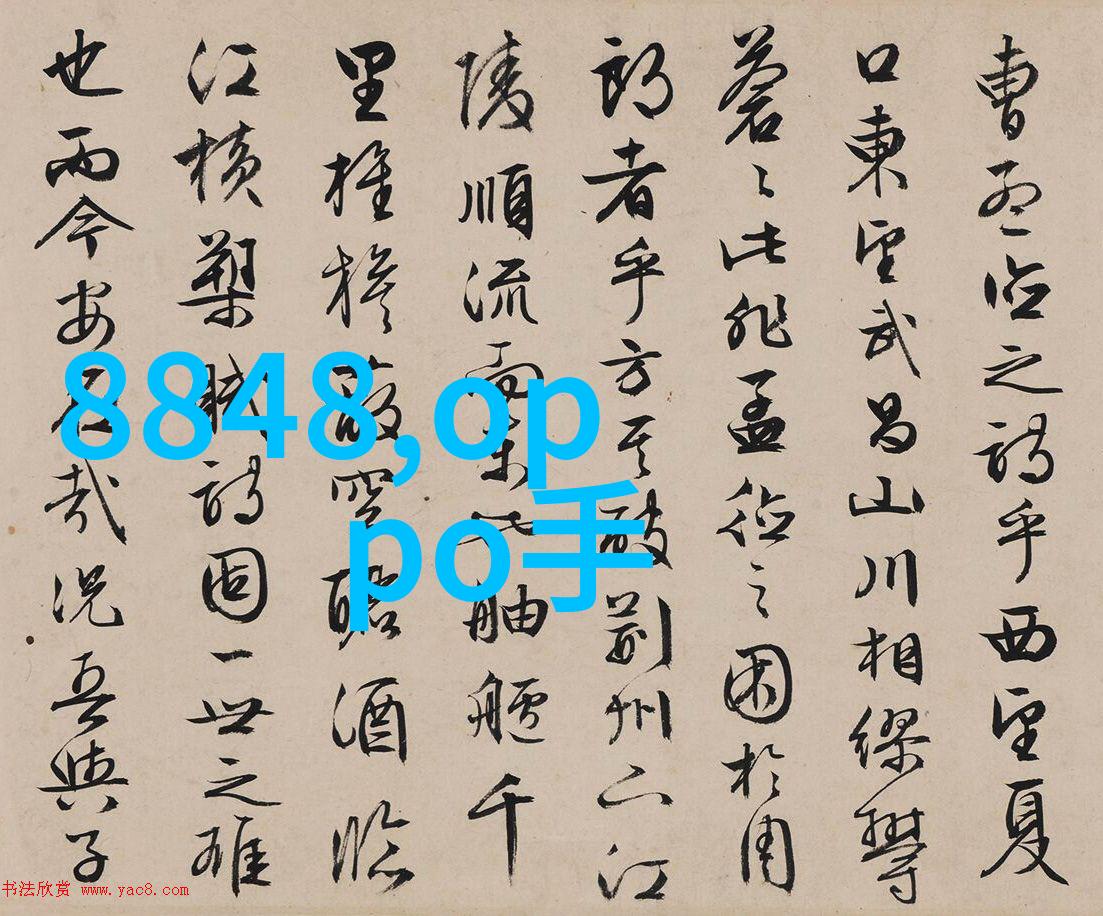 曹孟德之詩乎西望夏
口東望武昌山川相繆鬱
蒼〻此非孟德之困於周
郎者乎方其破荊州下江
陵順流而東也舳艫千
里旌旗蔽空釃酒臨
江橫槊賦詩固一世之雄
也而今安在哉況吾與子
8848,op
po手
书法欣赏 www.yac8.com